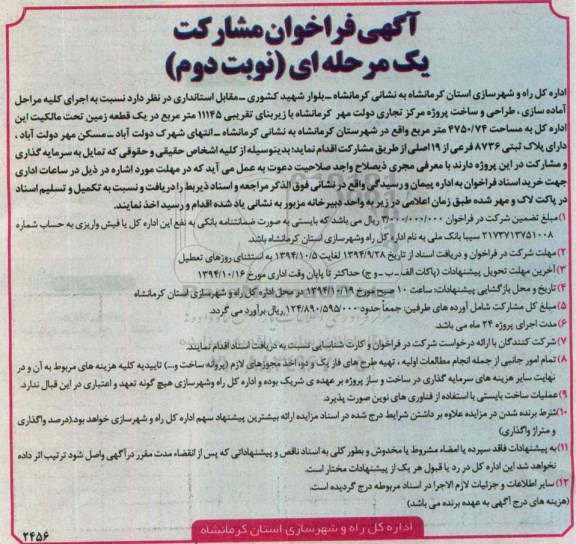 آگهی فراخوان مشارکت
یک مرحله ای (نوبت دوم)
اداره کل راه و شهرسازی استان کرمانشاه به نشانی کرمانشاه ـ بلوار شهید کشوری ـ مقابل استانداری در نظر دارد نسبت به اجرای کلیه مراحل
آماده سازی ، طراحی و ساخت پروژه مرکز تجاری دولت مهر کرمانشاه با زیربنای تقریبی ۱۱۱۴۵ متر مربع در یک قطعه زمین تحت مالکیت این
اداره کل به مساحت ۴۷۵۰/۷۴ متر مربع واقع در شهرستان کرمانشاه به نشانی کرمانشاه ـ انتهای شهرک دولت آباد ـ مسکن مهر دولت آباد ،
دارای پلاک ثبتی ۸۷۳۶ فرعی از ۱۹ اصلی از طریق مشارکت اقدام نماید؛ بدینوسیله از کلیه اشخاص حقیقی و حقوقی که تمایل به سرمایه گذاری
و مشارکت در این پروژه دارند با معرفی مجری ذیصلاح واجد صلاحیت دعوت به عمل می آید که در مهلت مورد اشاره در ذیل در ساعات اداری
جهت خرید اسناد فراخوان به اداره پیمان و رسیدگی واقع در نشانی فوق الذکر مراجعه و اسناد ذیربط را دریافت و نسبت به تکمیل و تسلیم اسناد
در پاکت لاک و مهر شده طبق زمان اعلامی در زیر به واحد دبیرخانه مزبور به نشانی یاد شده اقدام و رسید اخذ نمایند.
۱) مبلغ تضمین شرکت در فراخوان ۳/۰۰۰/۰۰۰/۰۰۰ ریال می باشد که بایستی به صورت ضمانتنامه بانکی به نفع این اداره کل یا فیش واریزی به حساب شماره
۲۱۷۳۷۱۳۷۵۱۰۰۸ سیبا بانک ملی به نام اداره کل راه وشهرسازی استان کرمانشاه باشد.
۲) مهلت شرکت در فراخوان و دریافت اسناد از تاریخ ۱۳۹۴/۹/۲۸ لغایت ۱۳۹۴/۱۰/۵ به استثنای روزهای تعطیل
۳) آخرین مهلت تحویل پیشنهادات (پاکات الف ـ ب ـ و ج) حداکثر تا پایان وقت اداری مورخ ۱۳۹۴/۱۰/۱۶
۴) تاریخ و محل بازگشایی پیشنهادات: ساعت ۱۰ صبح مورخ ۱۳۹۴/۱۰/۱۹ در محل اداره کل راه و شهرسازی استان کرمانشاه
۵) مبلغ کل مشارکت شامل آورده های طرفین: جمعاً حدود ۱۲۴/۸۹۰/۵۹۵/۰۰۰ ریال برآورد می گردد.
۶) مدت اجرای پروژه ۲۴ ماه می باشد.
۷) شرکت کنندگان با ارائه درخواست شرکت در فراخوان و کارت شناسایی نسبت به دریافت اسناد اقدام نمایند.
۸) تمام امور جانبی از جمله انجام مطالعات اولیه ، تهیه طرح های فاز یک و دو، اخذ مجوزهای لازم (پروانه ساخت و...) تاییدیه کلیه هزینه های مربوط به آن و در
نهایت سایر هزینه های سرمایه گذاری در ساخت و ساز پروژه بر عهده ی شریک بوده و اداره کل راه وشهرسازی هیچ گونه تعهد و اعتباری در این قبال ندارد.
۹) عملیات ساخت بایستی با استفاده از فناوری های نوین صورت پذیرد.
۱۰) شرط برنده شدن در مزایده علاوه بر داشتن شرایط درج شده در اسناد مزایده ارائه بیشترین پیشنهاد سهم اداره کل راه و شهرسازی خواهد بود.(درصد واگذاری
و متراژ واگذاری)
۱۱) به پیشنهادات فاقد سپرده یا امضاء مشروط یا مخدوش و بطور کلی به اسناد ناقص و پیشنهاداتی که پس از انقضاء مدت مقرر درآگهی واصل شود ترتیب اثر داده
نخواهد شد این اداره کل در رد یا قبول هر یک از پیشنهادات مختار است.
۱۲) سایر اطلاعات و جزئیات لازم الاجرا در اسناد مربوطه درج گردیده است.
(هزینه های درج آگهی به عهده برنده می باشد)
اداره کل راه و شهرسازی استان کرمانشاه
۲۴۵۶